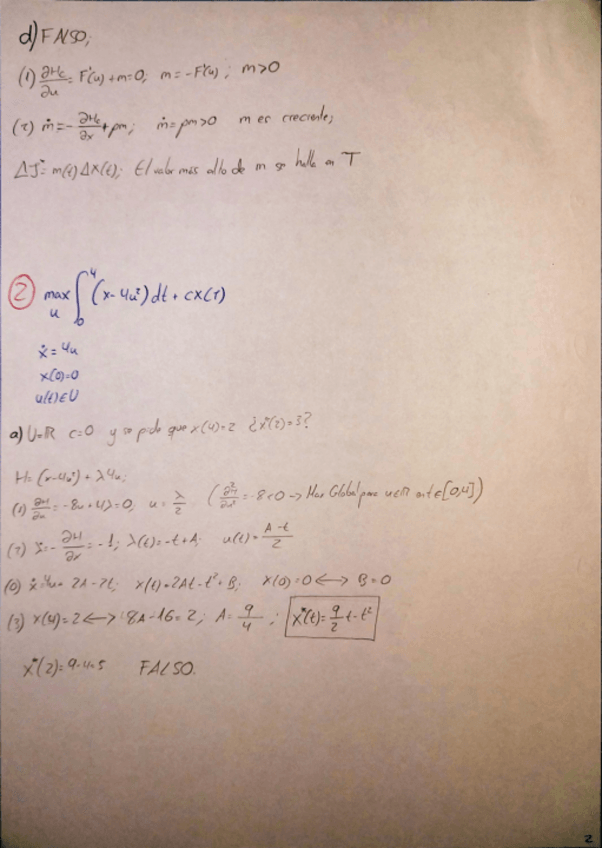 d) FALSO;
(1) ∂Hc/∂u = F'(u)+m=0; m=-F'(u); m>0
(2) ṁ=-∂Hc/∂x+ρm; ṁ=ρm>0 m es creciente;
ΔJ*=m(t)ΔX(t); El valor más alto de m se halla en T
② max u ∫₀⁴ (x-4u²)dt + cx(T)
ẋ=4u
x(0)=0
u(t)∈U
a) U=ℝ c=0 y se pide que x(4)=2 ¿x*(2)=3?
H=(x-4u²)+λ4u;
(1) ∂H/∂u=-8u+4λ=0; u=λ/2 (∂²H/∂u²=-8<0→Max Global para u∈ℝ ∀t∈[0,4])
(2) λ̇=-∂H/∂x=-1; λ(t)=-t+A; u(t)=(A-t)/2
(0) ẋ=4u=2A-2t; x(t)=2At-t²+B; x(0)=0⟷B=0
(3) x(4)=2⟷8A-16=2; A=9/4; x*(t)=9/2 t-t²
x*(2)=9-4=5 FALSO.
2